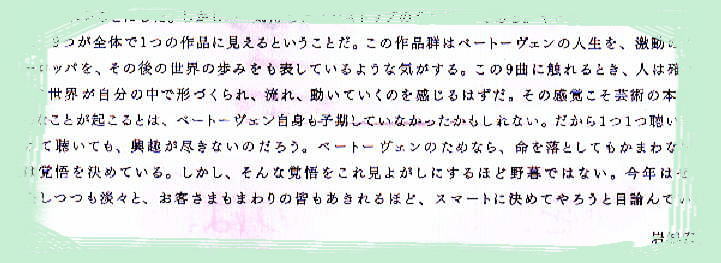 9つが全体で1つの作品に見えるということだ。この作品群はベートーヴェンの人生を、激動の
ーロッパを、その後の世界の歩みをも表しているような気がする。この9曲に触れるとき、人は
世界が自分の中で形づくられ、流れ、動いていくのを感じるはずだ。その感覚こそ芸術の本
なことが起こるとは、ベートーヴェン自身も予期していなかったかもしれない。だから1つ1つ聴い
て聴いても、興趣が尽きないのだろう。ベートーヴェンのためなら、命を落としてもかまわな
覚悟を決めている。しかし、そんな覚悟をこれ見よがしにするほど野暮ではない。今年は
しつつも淡々と、お客さまもまわりの皆もあきれるほど、スマートに決めてやろうと目論んでい